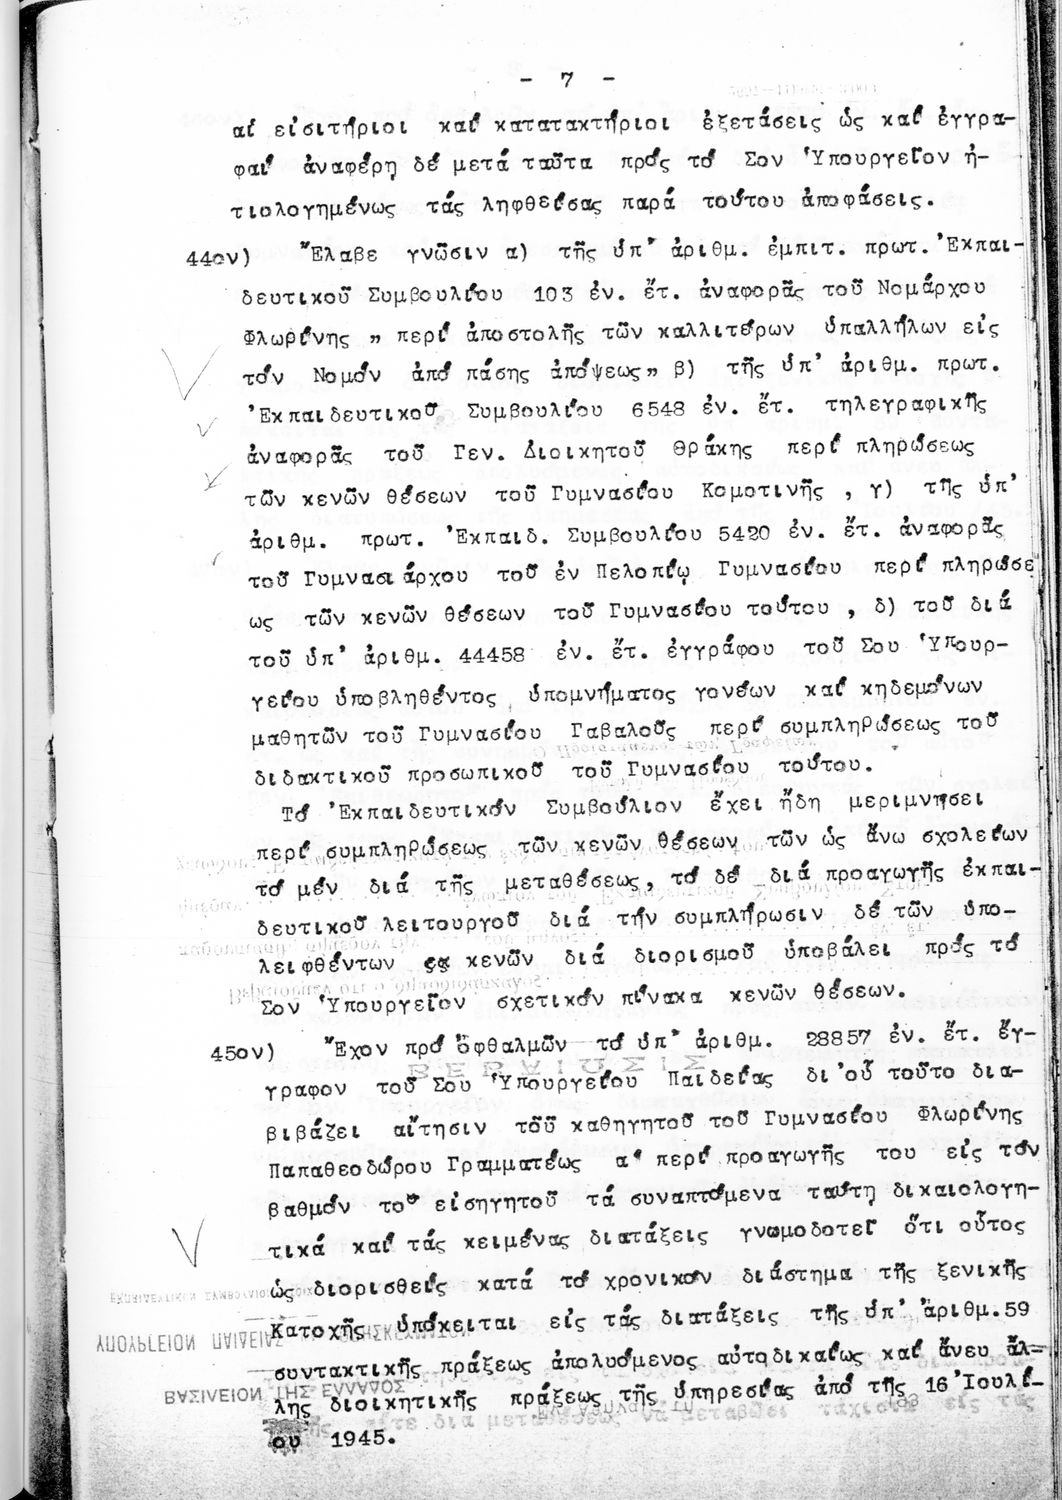 - 7 -
αἱ εἰσιτήριοι καί κατατακτήριοι ἐξετάσεις ὡς καί ἐγγρα-
φαί ἀναφέρῃ δέ μετά ταῦτα πρός τό Σον Ὑπουργεῖον ἠ-
τιολογημένως τάς ληφθείσας παρά τούτου ἀποφάσεις.
44ον) Ἔλαβε γνῶσιν α) τῆς ὑπ' ἀριθμ. ἐμπιτ. πρωτ. Ἐκπαι-
δευτικοῦ Συμβουλίου 103 ἐν. ἔτ. ἀναφορᾶς τοῦ Νομάρχου
Φλωρίνης „ περί ἀποστολῆς τῶν καλλιτέρων ὑπαλλήλων εἰς
τόν Νομόν ἀπό πάσης ἀπόψεως„ β) τῆς ὑπ' ἀριθμ. πρωτ.
Ἐκπαιδευτικοῦ Συμβουλίου 6548 ἐν. ἔτ. τηλεγραφικῆς
ἀναφορᾶς τοῦ Γεν. Διοικητοῦ Θράκης περί πληρώσεως
τῶν κενῶν θέσεων τοῦ Γυμνασίου Κομοτινῆς , γ) τῆς ὑπ'
ἀριθμ. πρωτ. Ἐκπαιδ. Συμβουλίου 5420 ἐν. ἔτ. ἀναφορᾶς
τοῦ Γυμνασιάρχου τοῦ ἐν Πελοπίῳ Γυμνασίου περί πληρώσε
ως τῶν κενῶν θέσεων τοῦ Γυμνασίου τούτου , δ) τοῦ διά
τοῦ ὑπ' ἀριθμ. 44458 ἐν. ἔτ. ἐγγράφου τοῦ Σου Ὑπουρ-
γείου ὑποβληθέντος ὑπομνήματος γονέων καί κηδεμόνων
μαθητῶν τοῦ Γυμνασίου Γαβαλοῦς περί συμπληρώσεως τοῦ
διδακτικοῦ προσωπικοῦ τοῦ Γυμνασίου τούτου.
Τό Ἐκπαιδευτικόν Συμβούλιον ἔχει ἤδη μεριμνήσει
περί συμπληρώσεως τῶν κενῶν θέσεων τῶν ὡς ἄνω σχολείων
τό μέν διά τῆς μεταθέσεως, τό δέ διά προαγωγῆς ἐκπαι-
δευτικοῦ λειτουργοῦ διά τήν συμπλήρωσιν δέ τῶν ὑπο-
λειφθέντων κενῶν διά διορισμοῦ ὑποβάλει πρός τό
Σον Ὑπουργεῖον σχετικόν πίνακα κενῶν θέσεων.
45ον) Ἔχον πρό ὀφθαλμῶν τό ὑπ' ἀριθμ. 28857 ἐν. ἔτ. ἔγ-
γραφον τοῦ Σου Ὑπουργείου Παιδείας δι'οὗ τοῦτο δια-
βιβάζει αἴτησιν τοῦ καθηγητοῦ τοῦ Γυμνασίου Φλωρίνης
Παπαθεοδώρου Γραμματέως α' περί προαγωγῆς του εἰς τόν
βαθμόν τοῦ εἰσηγητοῦ τά συναπτόμενα ταύτῃ δικαιολογη-
τικά καί τάς κειμένας διατάξεις γνωμοδοτεῖ ὅτι οὗτος
ὡς διορισθείς κατά τό χρονικόν διάστημα τῆς ξενικῆς
Κατοχῆς ὑπόκειται εἰς τάς διατάξεις τῆς ὑπ' ἀριθμ.59
συντακτικῆς πράξεως ἀπολυόμενος αὐτοδικαίως καί ἄνευ ἄλ-
λης διοικητικῆς πράξεως τῆς ὑπηρεσίας ἀπό τῆς 16 Ἰουλί-
ου 1945.